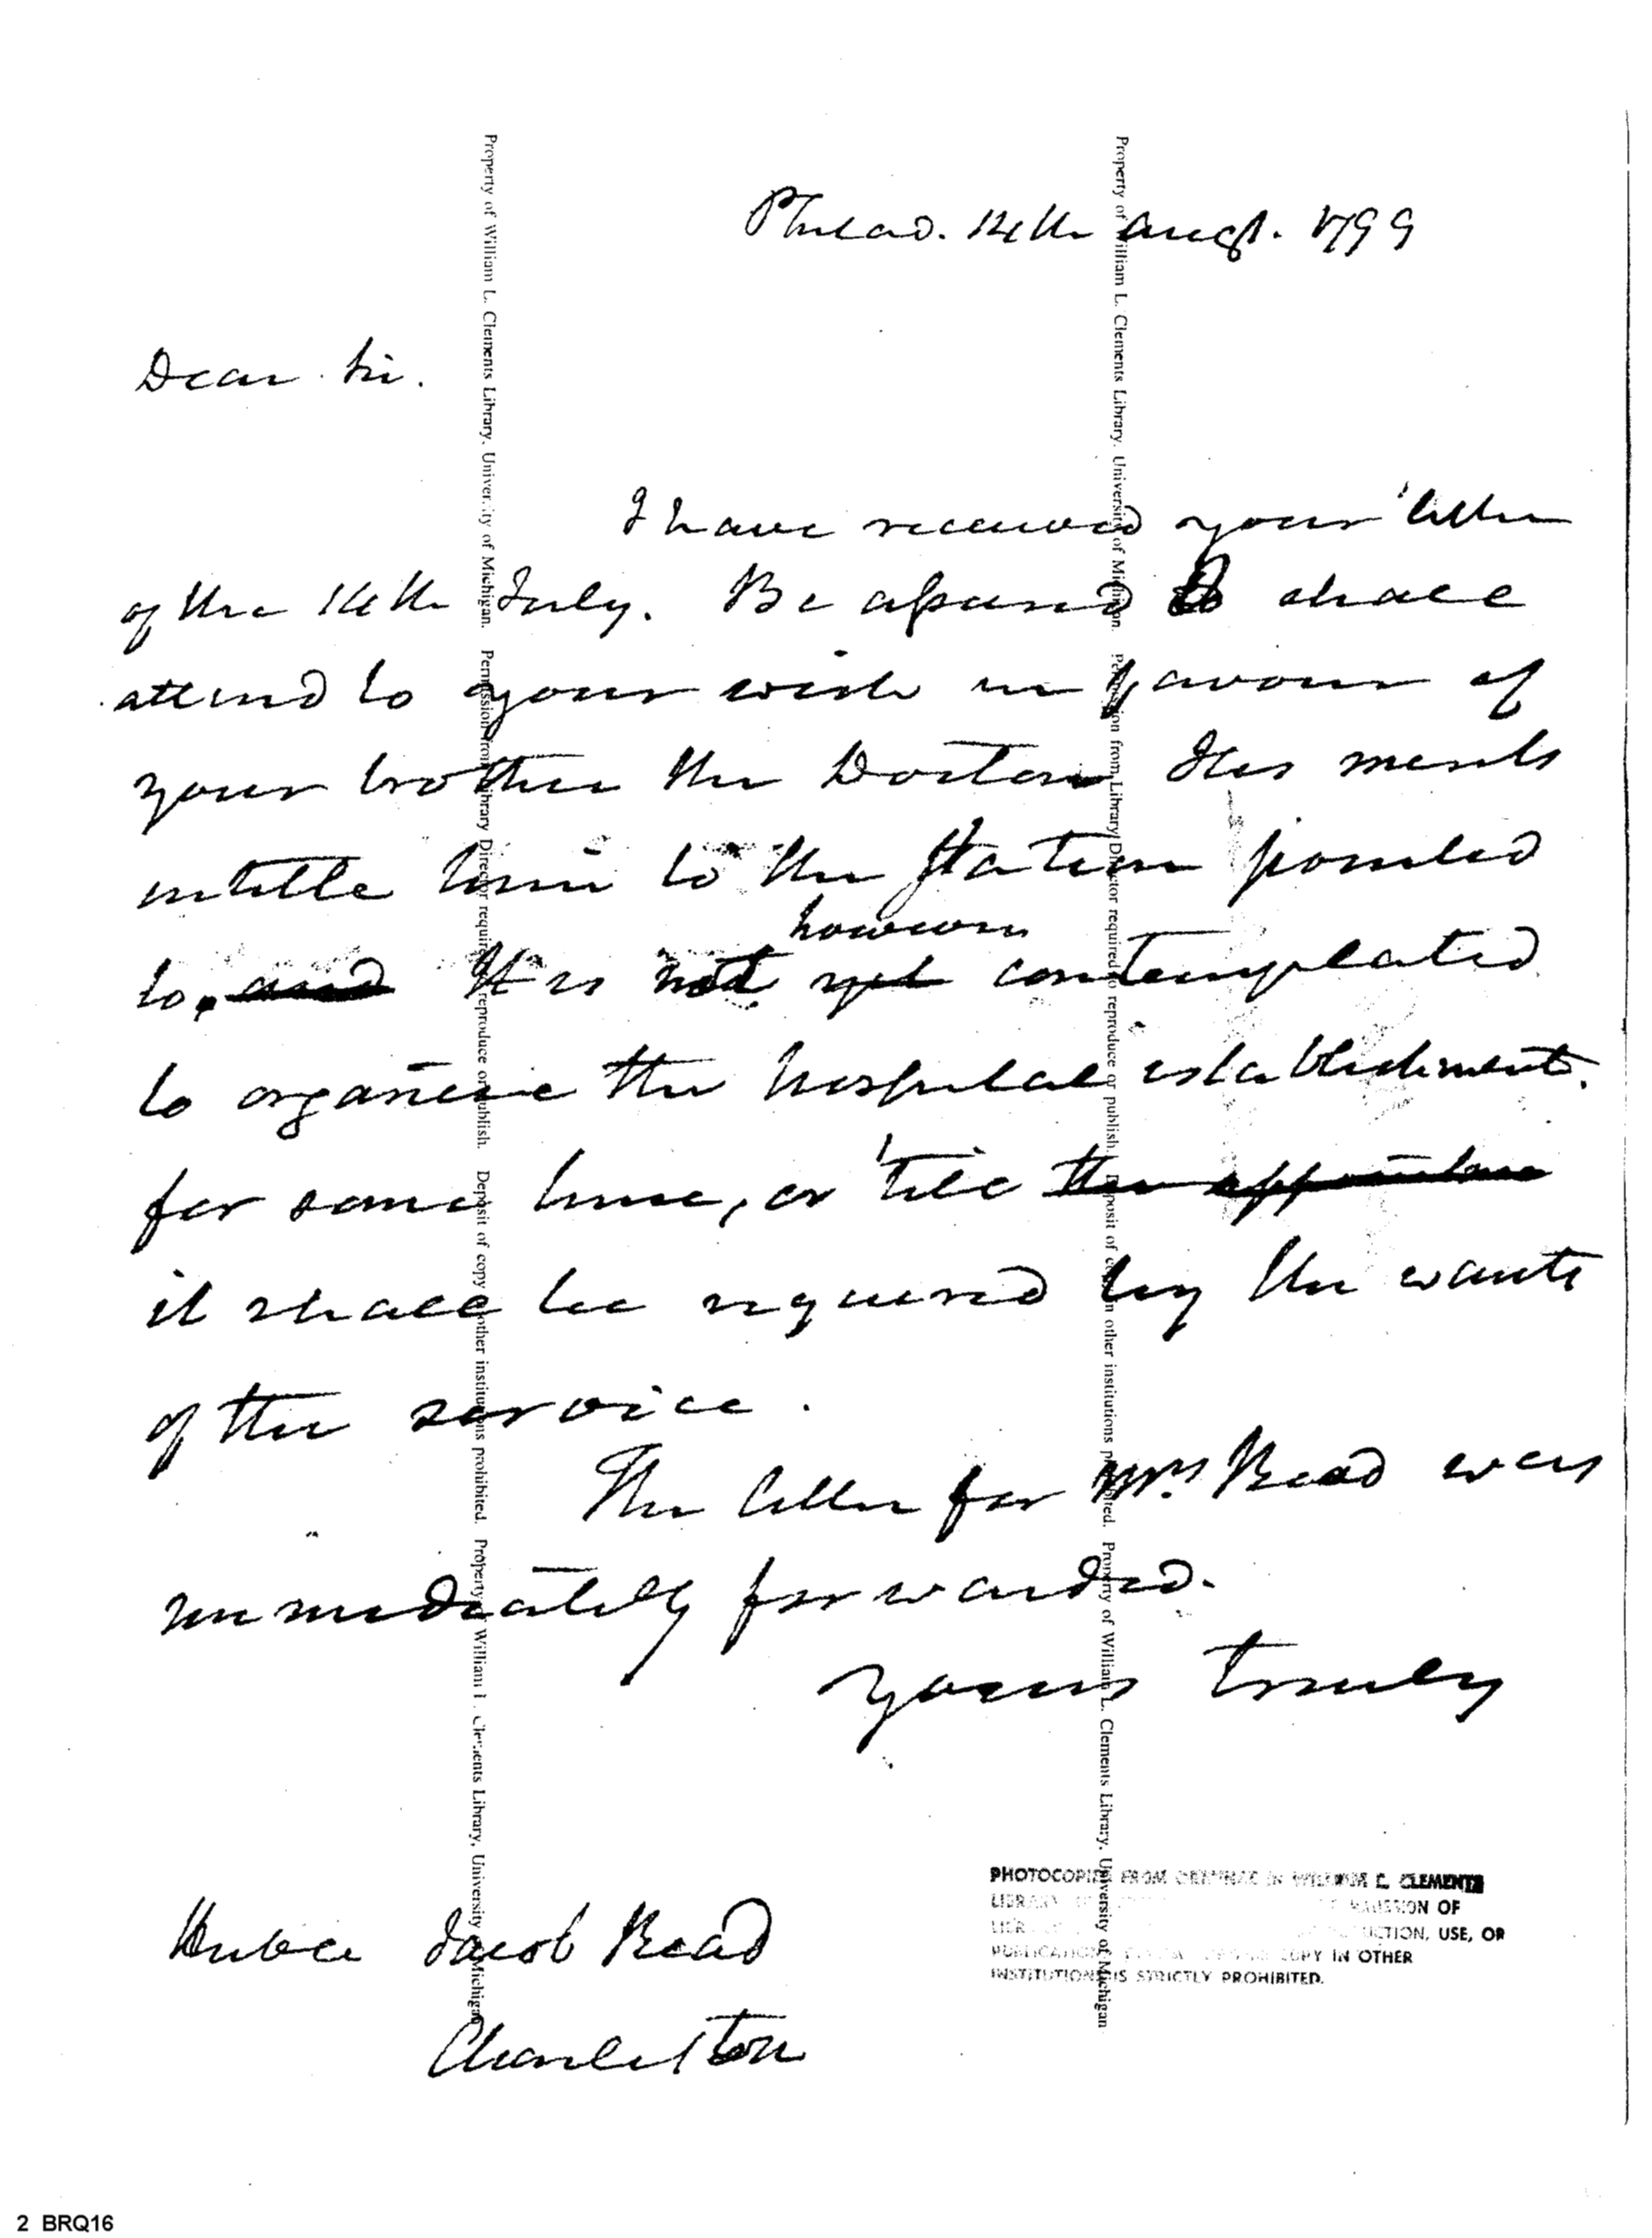 Philad. 14th Augt. 1799
Dear Sir.
I have received your letter
of the 14th July. Be assured I shall
attend to your wish in favour of
your brother the Doctor His merits
intitle him to the station pointed
however
to. and It is not yet contemplated
to organize the hospital establishment.
for some time, or 'till the appointme
it shall be required by the wants
of the service.
The letter for Mrs. Read was
immediately forwarded.
Yours truly
Jacob Read
Charleston
Property of William L. Clements Library, University of Michigan. Permission from Library Director required to reproduce or publish. Deposit of copy in other institutions prohibited. Property of William L. Clements Library, University of Michigan
Property of William L. Clements Library, University of Michigan. Permission from Library Director required to reproduce or publish. Deposit of copy in other institutions prohibited. Property of William L. Clements Library, University of Michigan
PHOTOCOPIED FROM ORIGINAL IN WILLIAM L. CLEMENTS
LIBRARY PERMISSION OF
USE, OR
PUBLICATION COPY IN OTHER
INSTITUTIONS IS STRICTLY PROHIBITED.
2 BRQ16